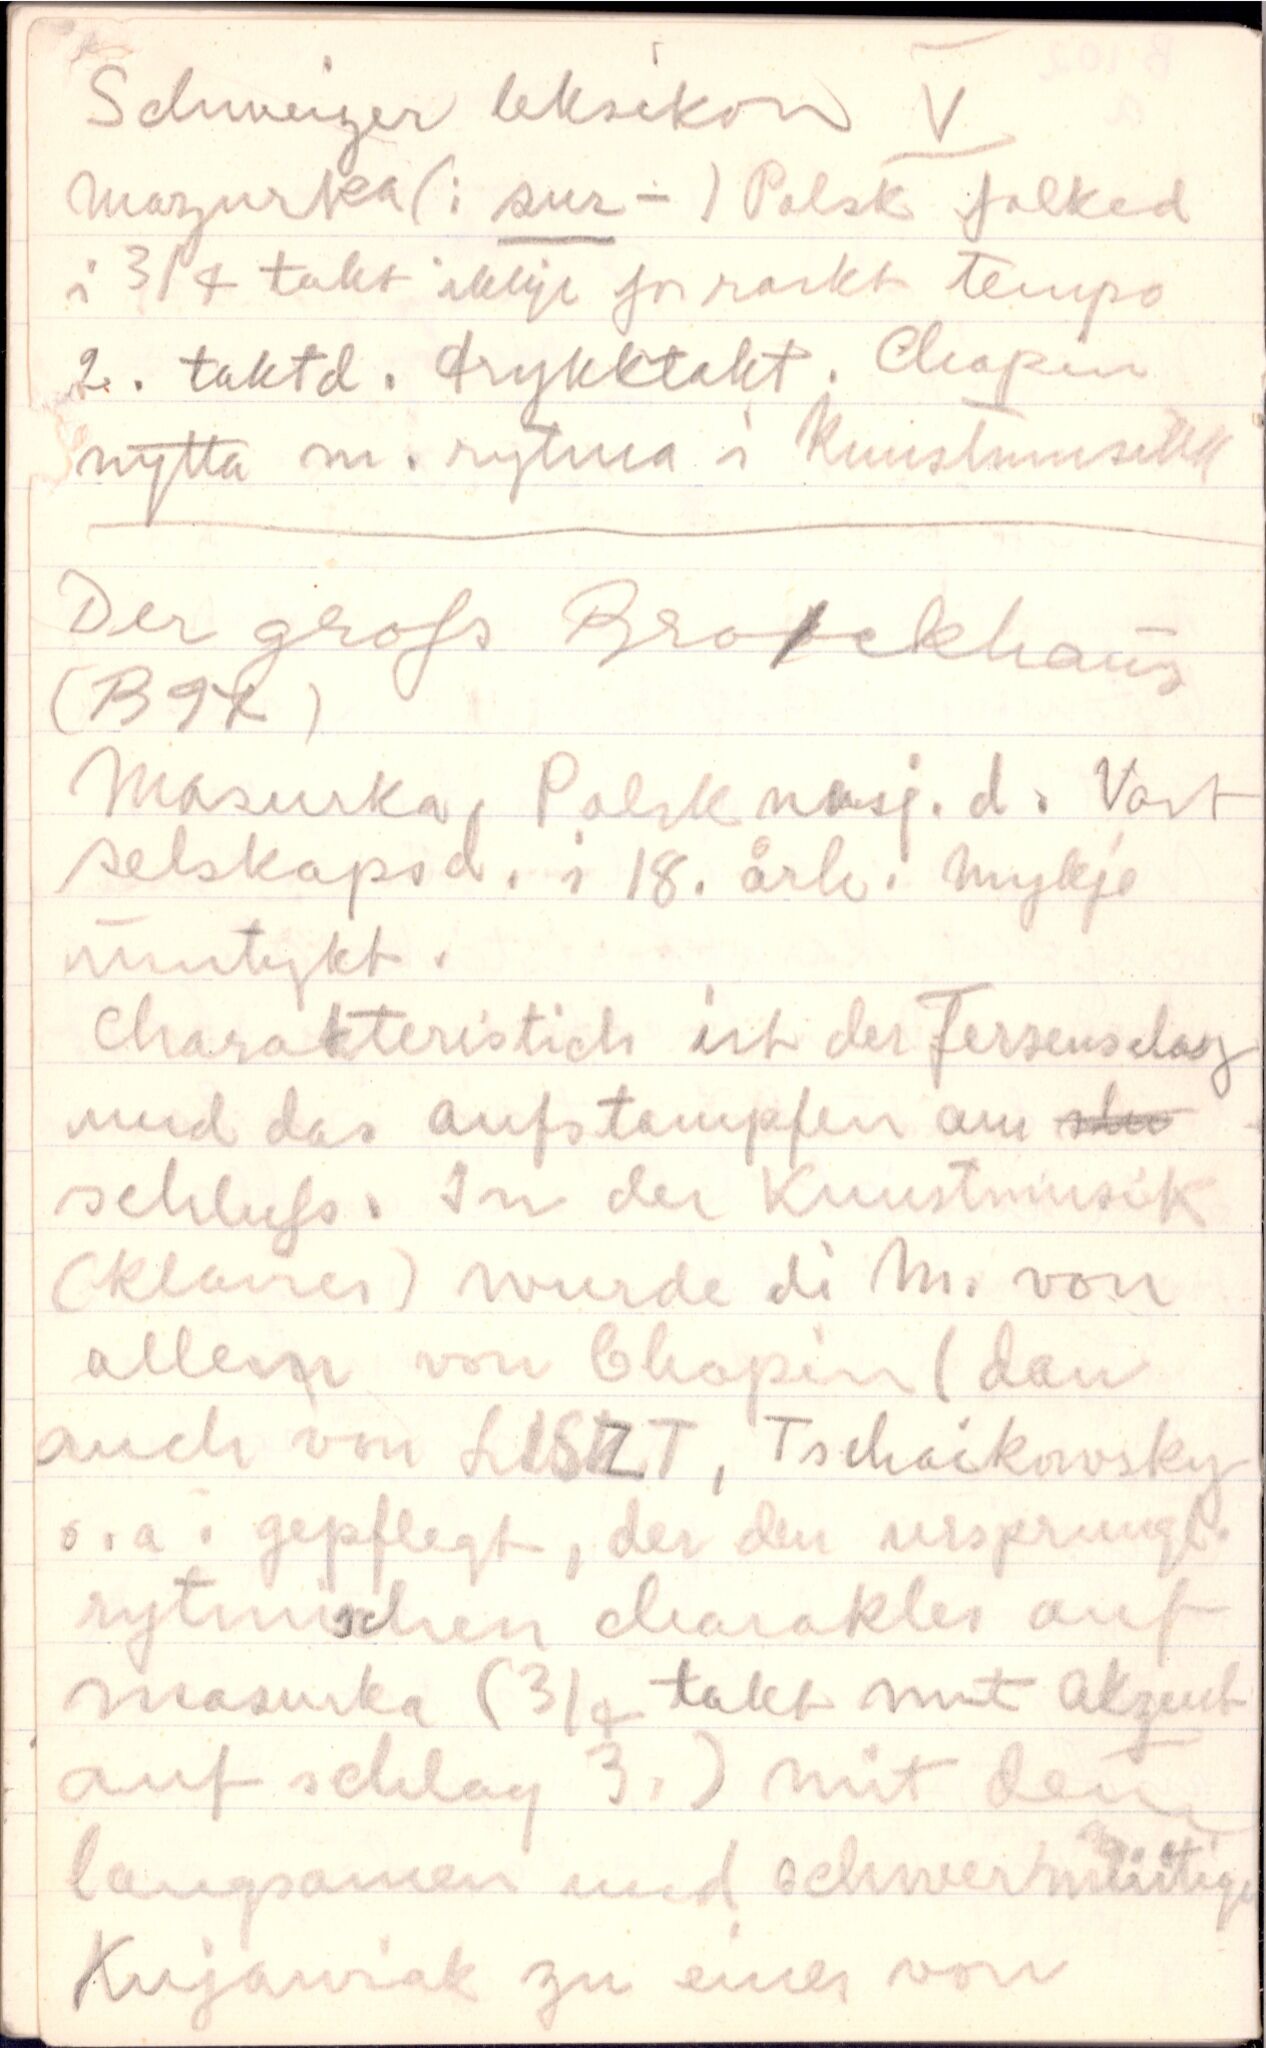 Schweizer leksikon V
Mazurka (: sur - ) Polsk folked
i 3/4 takt ikkje for raskt tempo
2. taktd. trykktakt. Chopin
nytta m. rytma i Kunstmusikk
Der groß Brockhaus
(B 92)
Masurka, Polsk nasj. d. Vart
selskapsd. i 18. årh. mykje
umtykt.
Charakteristich ist der Fersenschlag
und das aufstampfen am
schluß. In der Kunstmusik
(klavier) wurde di M. von
allem von Chopin (dan
auch von LISZT, Tschaikowsky
o.a. gepflegt, der den ursprungl.
rytmischen charakter auf
masurka (3/4 takt mit Akzent
auf schlag 3.) mit den
langsamen und schwermütige
Kujawiak zu einer von